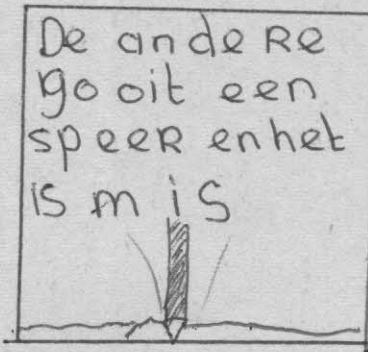 De andere
gooit een
speer en het
is mis